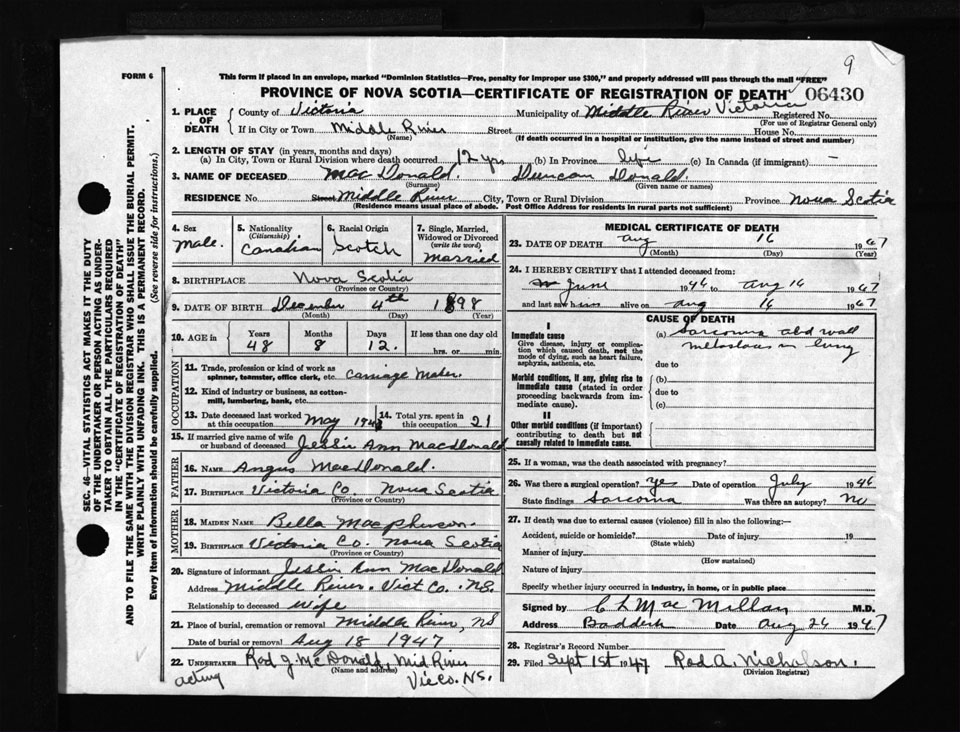 9
FORM 6
This form if placed in an envelope, marked "Dominion Statistics—Free, penalty for improper use $300," and properly addressed will pass through the mail "FREE"
PROVINCE OF NOVA SCOTIA—CERTIFICATE OF REGISTRATION OF DEATH 06430
1. PLACE OF DEATH
County of Victoria Municipality of Middle River Victoria Registered No.
(For use of Registrar General only)
If in City or Town Middle River Street House No.
(Name) (If death occurred in a hospital or institution, give the name instead of street and number)
2. LENGTH OF STAY (in years, months and days)
(a) In City, Town or Rural Division where death occurred 12 yrs (b) In Province life (c) In Canada (if immigrant) —
3. NAME OF DECEASED MacDonald Duncan Donald
(Surname) (Given name or names)
RESIDENCE No. Street Middle River City, Town or Rural Division Province Nova Scotia
(Residence means usual place of abode. Post Office Address for residents in rural parts not sufficient)
4. Sex Male.
5. Nationality (Citizenship) Canadian
6. Racial Origin Scotch
7. Single, Married, Widowed or Divorced (write the word) Married
8. BIRTHPLACE Nova Scotia
(Province or Country)
9. DATE OF BIRTH December 4th 1898
(Month) (Day) (Year)
10. AGE in Years Months Days If less than one day old
48 8 12. hrs. or min.
OCCUPATION
11. Trade, profession or kind of work as spinner, teamster, office clerk, etc. Carriage Maker.
12. Kind of industry or business, as cotton-mill, lumbering, bank, etc.
13. Date deceased last worked at this occupation May 194
14. Total yrs. spent in this occupation 21
15. If married give name of wife or husband of deceased Jessie Ann Macdonald
FATHER
16. NAME Angus MacDonald.
17. BIRTHPLACE Victoria Co Nova Scotia
(Province or Country)
MOTHER
18. MAIDEN NAME Bella Macpherson.
19. BIRTHPLACE Victoria Co. Nova Scotia
(Province or Country)
20. Signature of informant Jessie Ann MacDonald
Address Middle River. Vict Co. NS.
Relationship to deceased Wife
21. Place of burial, cremation or removal Middle River, NS
Date of burial or removal Aug 18 1947
22. UNDERTAKER Rod J. McDonald, Mid River
(Name and address)
acting Vic Co. NS.
MEDICAL CERTIFICATE OF DEATH
23. DATE OF DEATH Aug 16 1947
(Month) (Day) (Year)
24. I HEREBY CERTIFY that I attended deceased from:
June 1946 to Aug 16 1947
and last saw him alive on Aug 16 1947
CAUSE OF DEATH
I
Immediate cause
Give disease, injury or complication which caused death, not the mode of dying, such as heart failure, asphyxia, asthenia, etc.
(a) Sarcoma abd wall
metastases in lung
due to
Morbid conditions, if any, giving rise to immediate cause (stated in order proceeding backwards from immediate cause).
(b)
due to
(c)
II
Other morbid conditions (if important) contributing to death but not causally related to immediate cause.
25. If a woman, was the death associated with pregnancy?
26. Was there a surgical operation? yes Date of operation July 1946
State findings Sarcoma Was there an autopsy? No
27. If death was due to external causes (violence) fill in also the following:—
Accident, suicide or homicide? Date of injury 19
(State which)
Manner of injury
(How sustained)
Nature of injury
Specify whether injury occurred in industry, in home, or in public place
Signed by C L MacMillan M.D.
Address Baddeck Date Aug 26 1947
28. Registrar's Record Number
29. Filed Sept 1st 1947 Rod A. Nicholson.
(Division Registrar)
SEC. 46—VITAL STATISTICS ACT MAKES IT THE DUTY
OF THE UNDERTAKER OR PERSON ACTING AS UNDER-
TAKER TO OBTAIN ALL THE PARTICULARS REQUIRED
IN THE "CERTIFICATE OF REGISTRATION OF DEATH"
AND TO FILE THE SAME WITH THE DIVISION REGISTRAR WHO SHALL ISSUE THE BURIAL PERMIT.
WRITE PLAINLY WITH UNFADING INK. THIS IS A PERMANENT RECORD.
Every item of information should be carefully supplied. (See reverse side for instructions.)